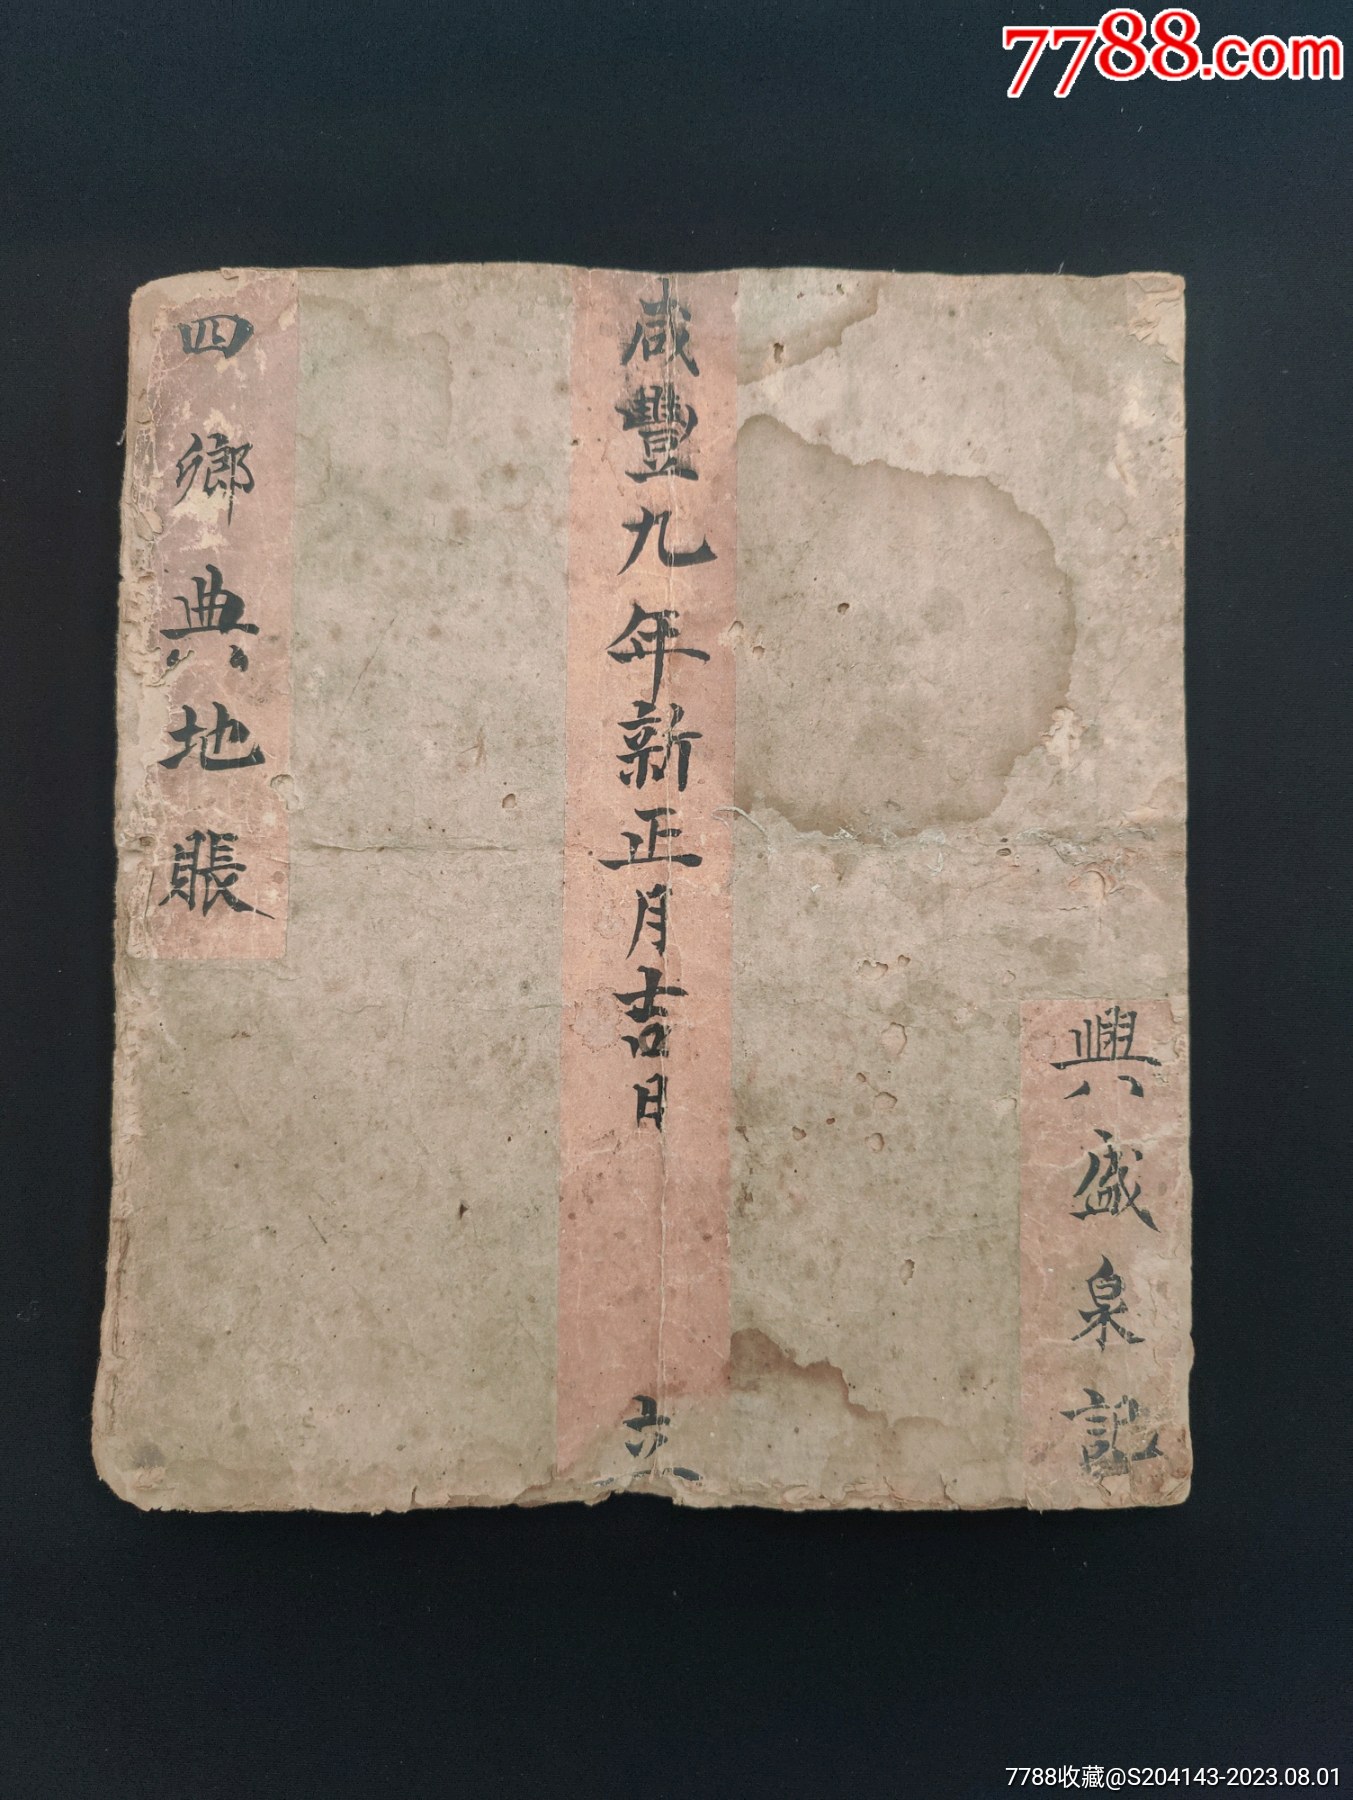 7788.com
興盛泉記
咸豐九年新正月吉日 立
四鄉典地賬
7788收藏@S204143-2023.08.01